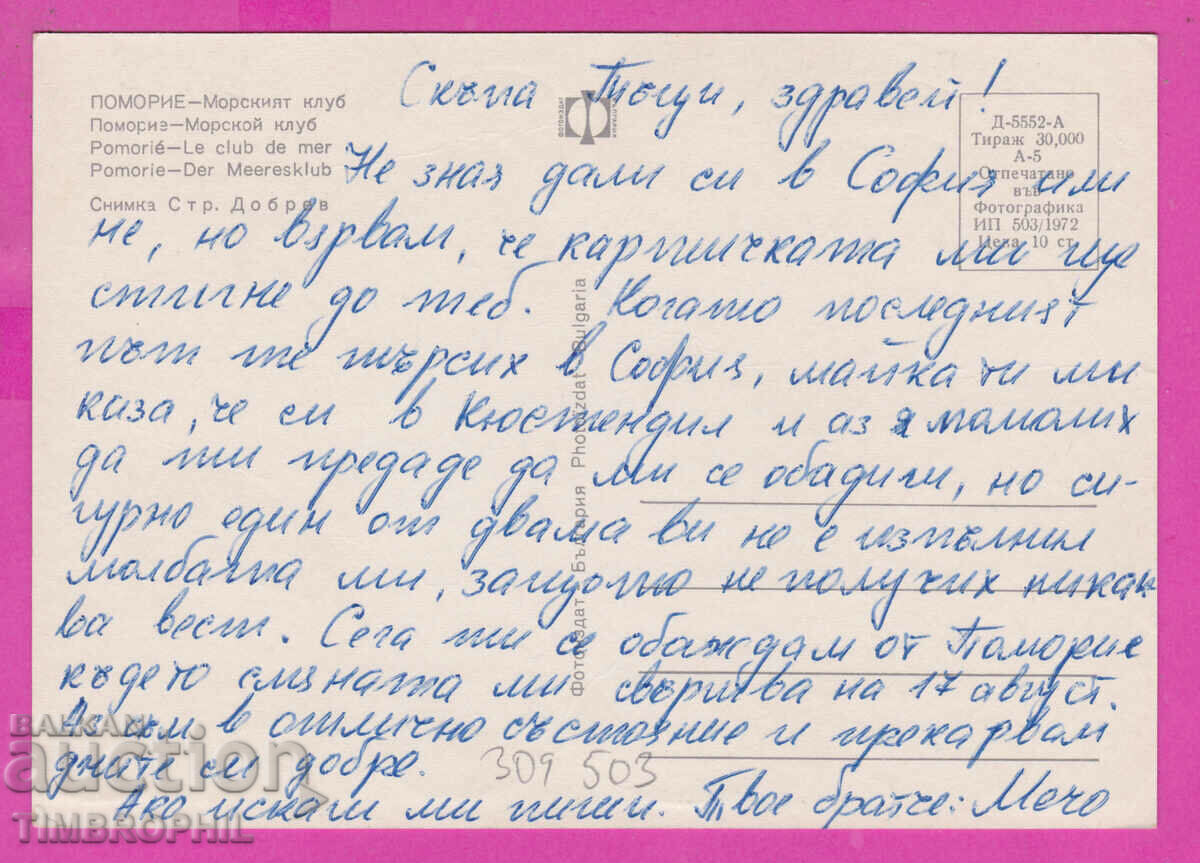 ПОМОРИЕ—Морският клуб
Поморие—Морской клуб
Pomorié—Le club de mer
Pomorie—Der Meeresklub
Снимка Стр. Добрев
Д-5552-А
Тираж 30,000
А-5
Отпечатано
във
Фотографика
ИП 503/1972
Цена 10 ст.
Фотоиздат България Photoizdat Bulgaria
Скъпа здравей!
Не зная дали си в София или
не, но вярвам, че картичката ми ще
стигне до теб. Когато последният
път те търсих в София, майка ти ми
каза, че си в Кюстендил и аз я помолих
да ти предаде да ми се обадиш, но си-
гурно един от двама ви не е изпълнил
молбата ми, защото не получих никак-
ва вест. Сега ти се обаждам от Поморие
където смяната ми свършва на 17 август.
Аз съм в отлично състояние и прекарвам
дните си добре.
309 503
Ако искаш ми пиши. Твое братче: Мечо
БАЛКАН
auction
TIMBROPHIL